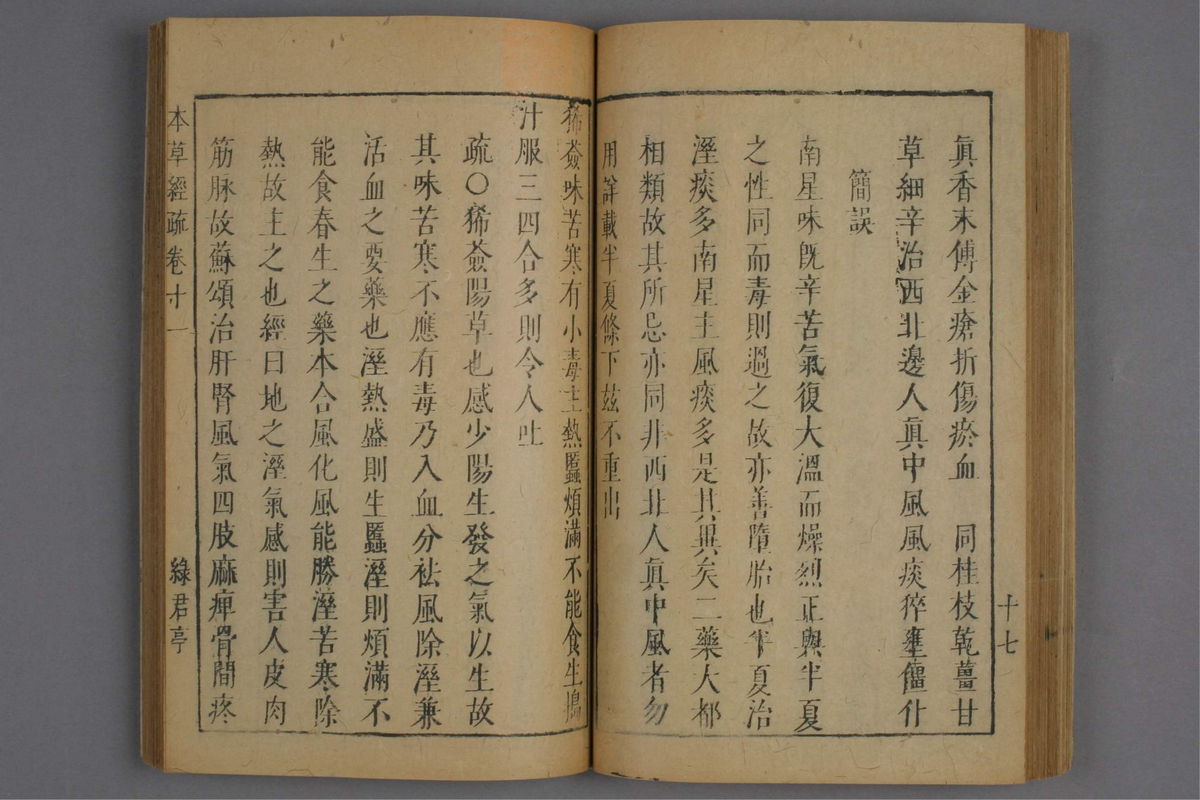 十七
真香末傅金瘡折傷瘀血　同桂枝乾薑甘
草細辛治西北邊人真中風風痰猝壅僵仆
簡誤
南星味既辛苦氣復大溫而燥烈正與半夏
之性同而毒則過之故亦善墮胎也半夏治
溼痰多南星主風痰多是其異矣二藥大都
相類故其所忌亦同非西北人真中風者勿
用詳載半夏條下玆不重出
豨薟味苦寒有小毒主熱䘌煩滿不能食生搗
汁服三四合多則令人吐
疏○豨薟陽草也感少陽生發之氣以生故
其味苦寒不應有毒乃入血分祛風除溼兼
活血之要藥也溼熱盛則生䘌溼則煩滿不
能食春生之藥本合風化風能勝溼苦寒除
熱故主之也經曰地之溼氣感則害人皮肉
筋脉故蘇頌治肝腎風氣四肢麻痺骨間疼
本草經疏卷十一
綠君亭